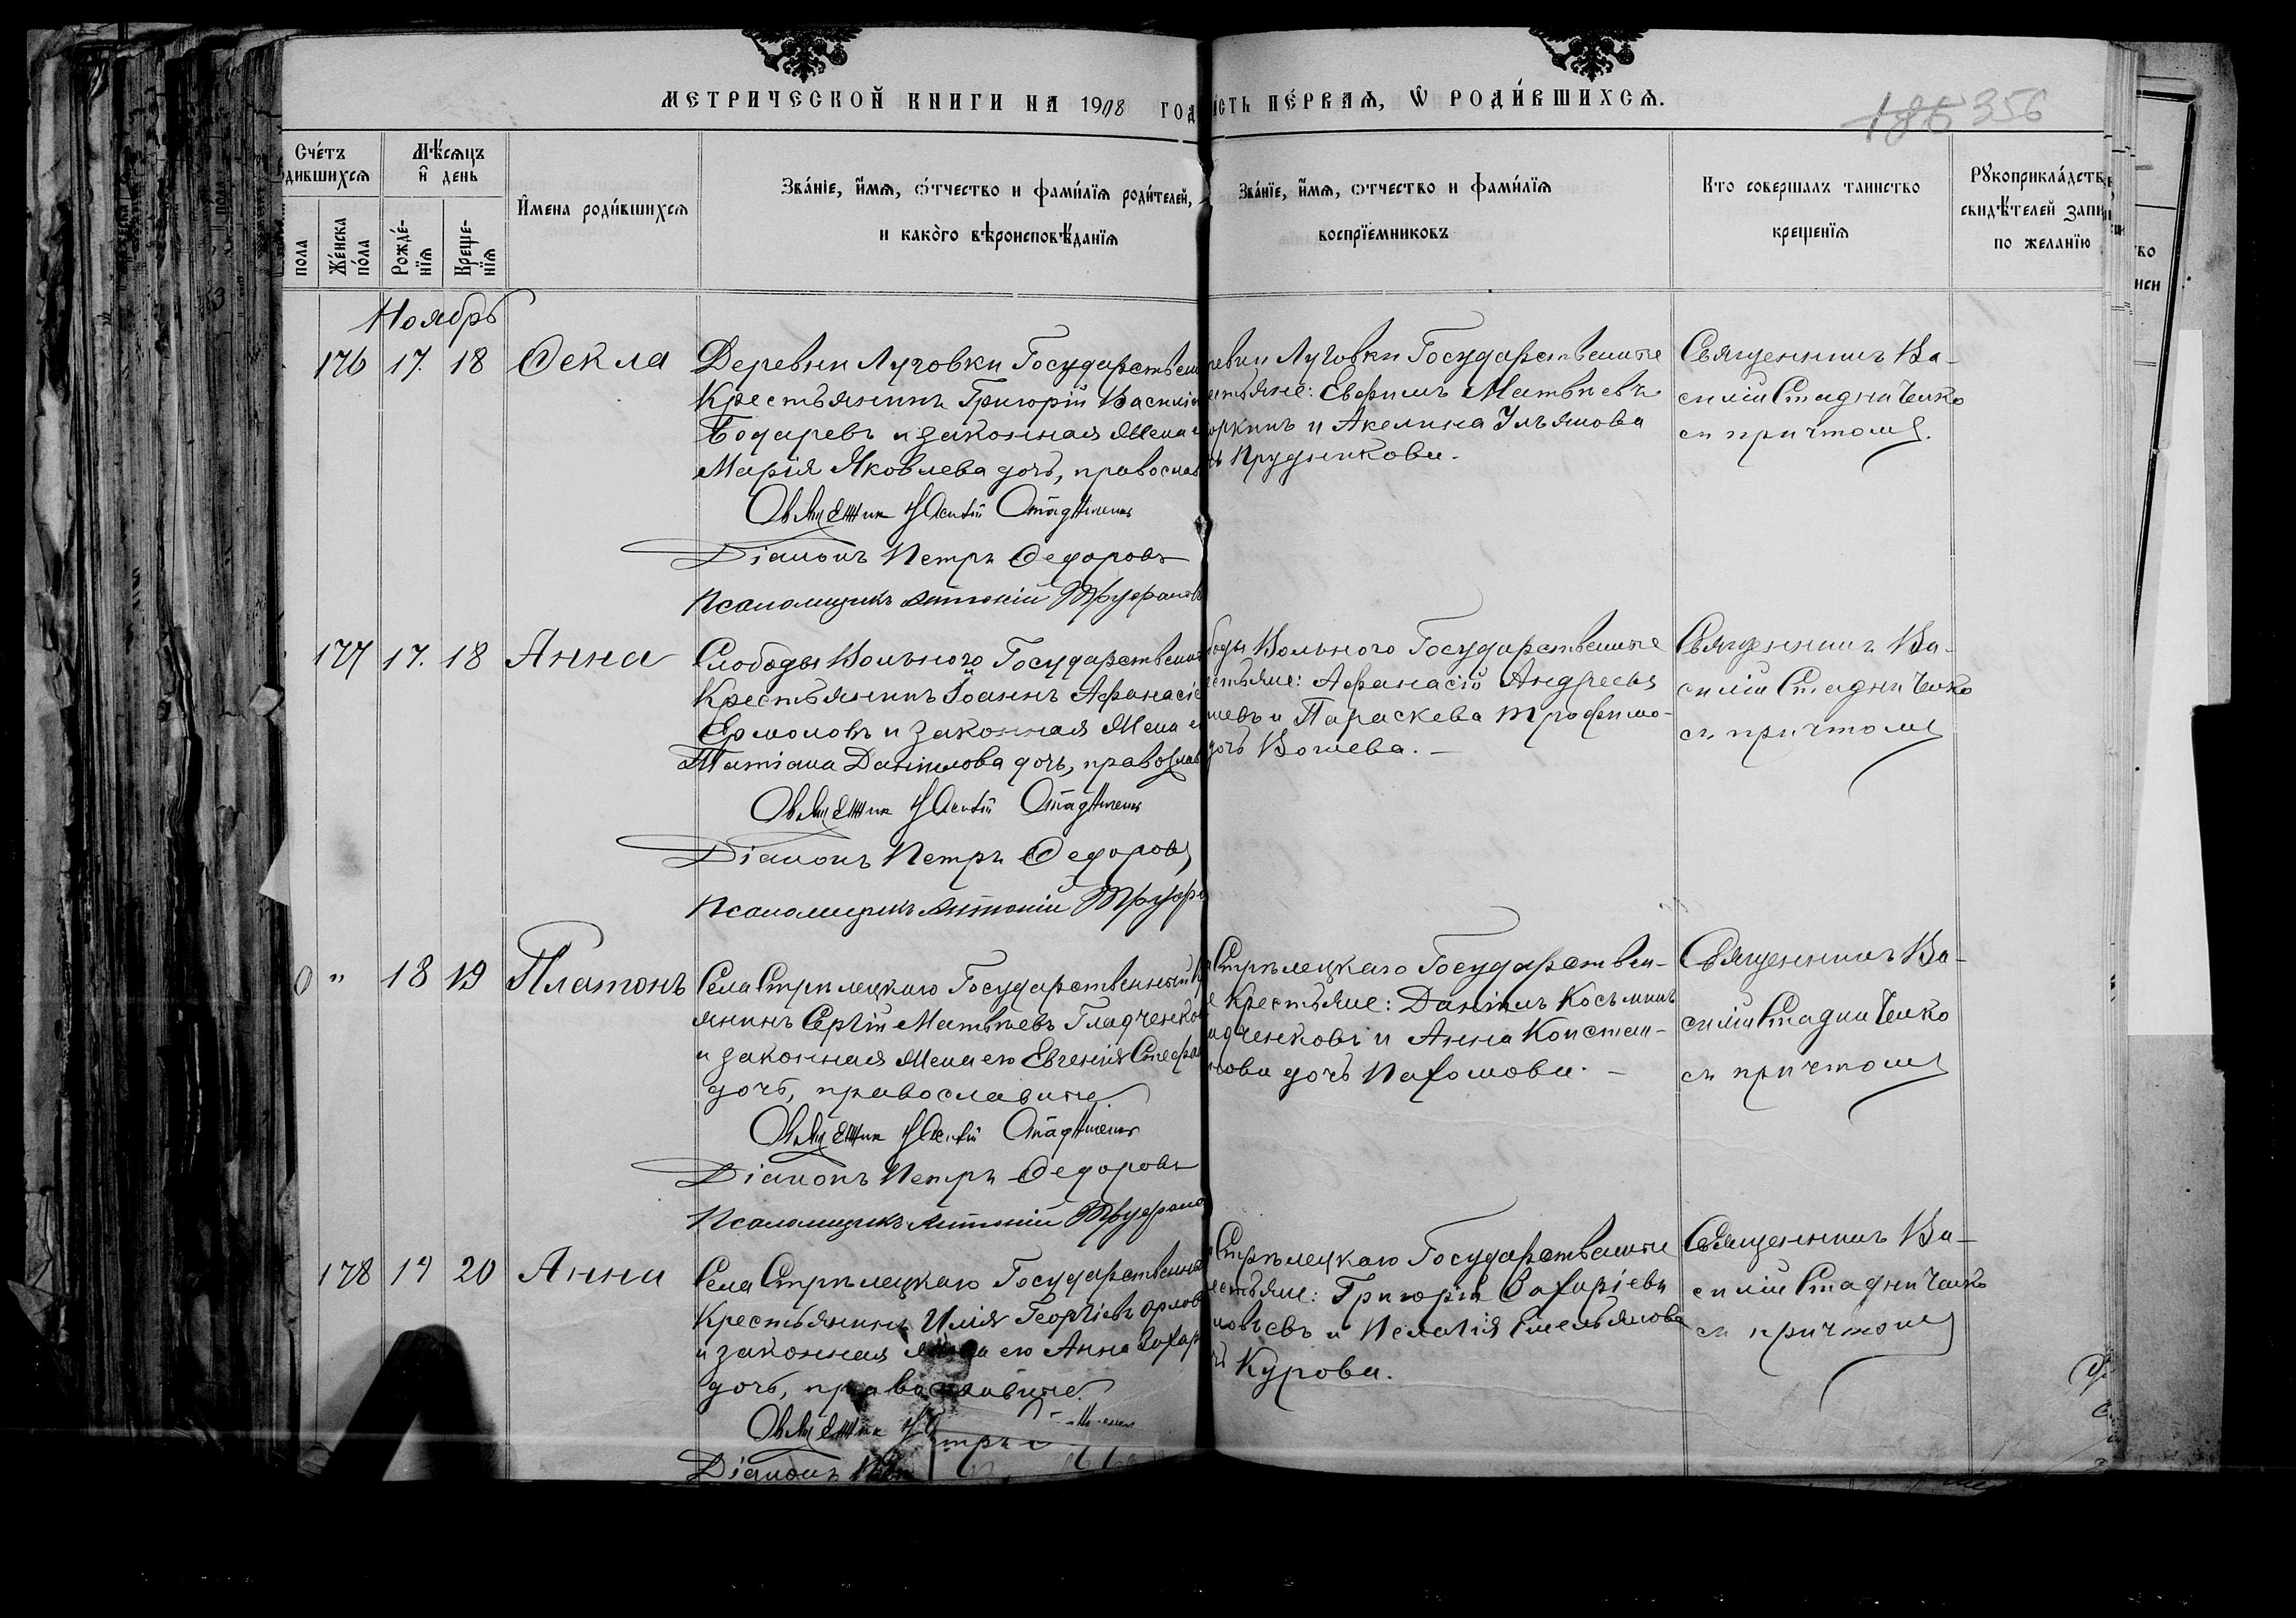 МЕТРИЧЕСКОЙ КНИГИ НА 1908 ГОД
ИСТЬ ПЕ́РВАѦ, Ѡ҆ РОДИ́ВШИХСѦ.
356
Сче́тъ
дившихсѧ
Мѣ́сѧцъ
и҆ день
пола
Же́нска
по́ла
Рожде́-
нїѧ
Креще-
нїѧ
И҆мена роди́вшихсѧ
Зва́нїе, и҆́мѧ, ѻ҆́тчество и фами́лїѧ роди́телей,
и како̀го вѣроисповѣ́данїѧ
Зва́нїе, и҆́мѧ, ѻтчество и фами́лїѧ
воспрїемниковъ
Кто совершалъ таинство
крещенїѧ
Рꙋкоприкла́дств
свидѣ́телей запи
по желанїю
Ноябрь
176 17. 18 Ѳекла
Деревни Луговки Государствен
Крестьянинъ Григорій Василіе
Бочаревъ и законная жена е
Марія Яковлева дочь, православ
Священник Василій
Діаконъ Петръ Ѳедоровъ
Псаломщикъ Антоній Труфановъ
ревни Луговки Государственные
естьяне: Евфимъ Матвѣевъ
оркинъ и Акелина Ульянова
ь Прудникова.
Священникъ Ва-
силій Стадниченко
съ причтомъ.
177 17. 18 Анна
Слободы Вольного Государствен
Крестьянинъ Іоаннъ Афанасіе
Ермоловъ и законная жена е
Татіана Даніилова дочь, православ
Священник Василій
Діаконъ Петръ Ѳедоровъ
Псаломщикъ Антоній Труфа
боды Вольного Государственные
естьяне: Афанасій Андреевъ
шевъ и Параскева Трофимо-
дочь Вошева. —
Священникъ Ва-
силій Стадниченко
съ причтомъ
0 " 18 19 Платонъ
Села Стрѣлецкаго Государственный К
янинъ Сергій Матвѣевъ Гладченко
и законная жена его Евгенія Стефа
дочь, православные
Священник Василій
Діаконъ Петръ Ѳедоровъ
Псаломщикъ Антоній Труфано
Стрѣлецкаго Государствен-
е Крестьяне: Даніилъ Косьминъ
адченковъ и Анна Констан-
нова дочь Пахомова. —
Священникъ Ва-
силій Стадниченко
съ причтомъ
178 19 20 Анна
Села Стрѣлецкаго Государственны
Крестьянинъ Илія Георгіевъ Орлов
и законная жена его Анна Захар
дочь, православные
Священник
Діаконъ
Стрѣлецкаго Государственные
естьяне: Григорій Захаріевъ
новьевъ и Пелагія Емельянова
ь Курова.
Священникъ Ва-
силій Стадниченко
съ причтомъ